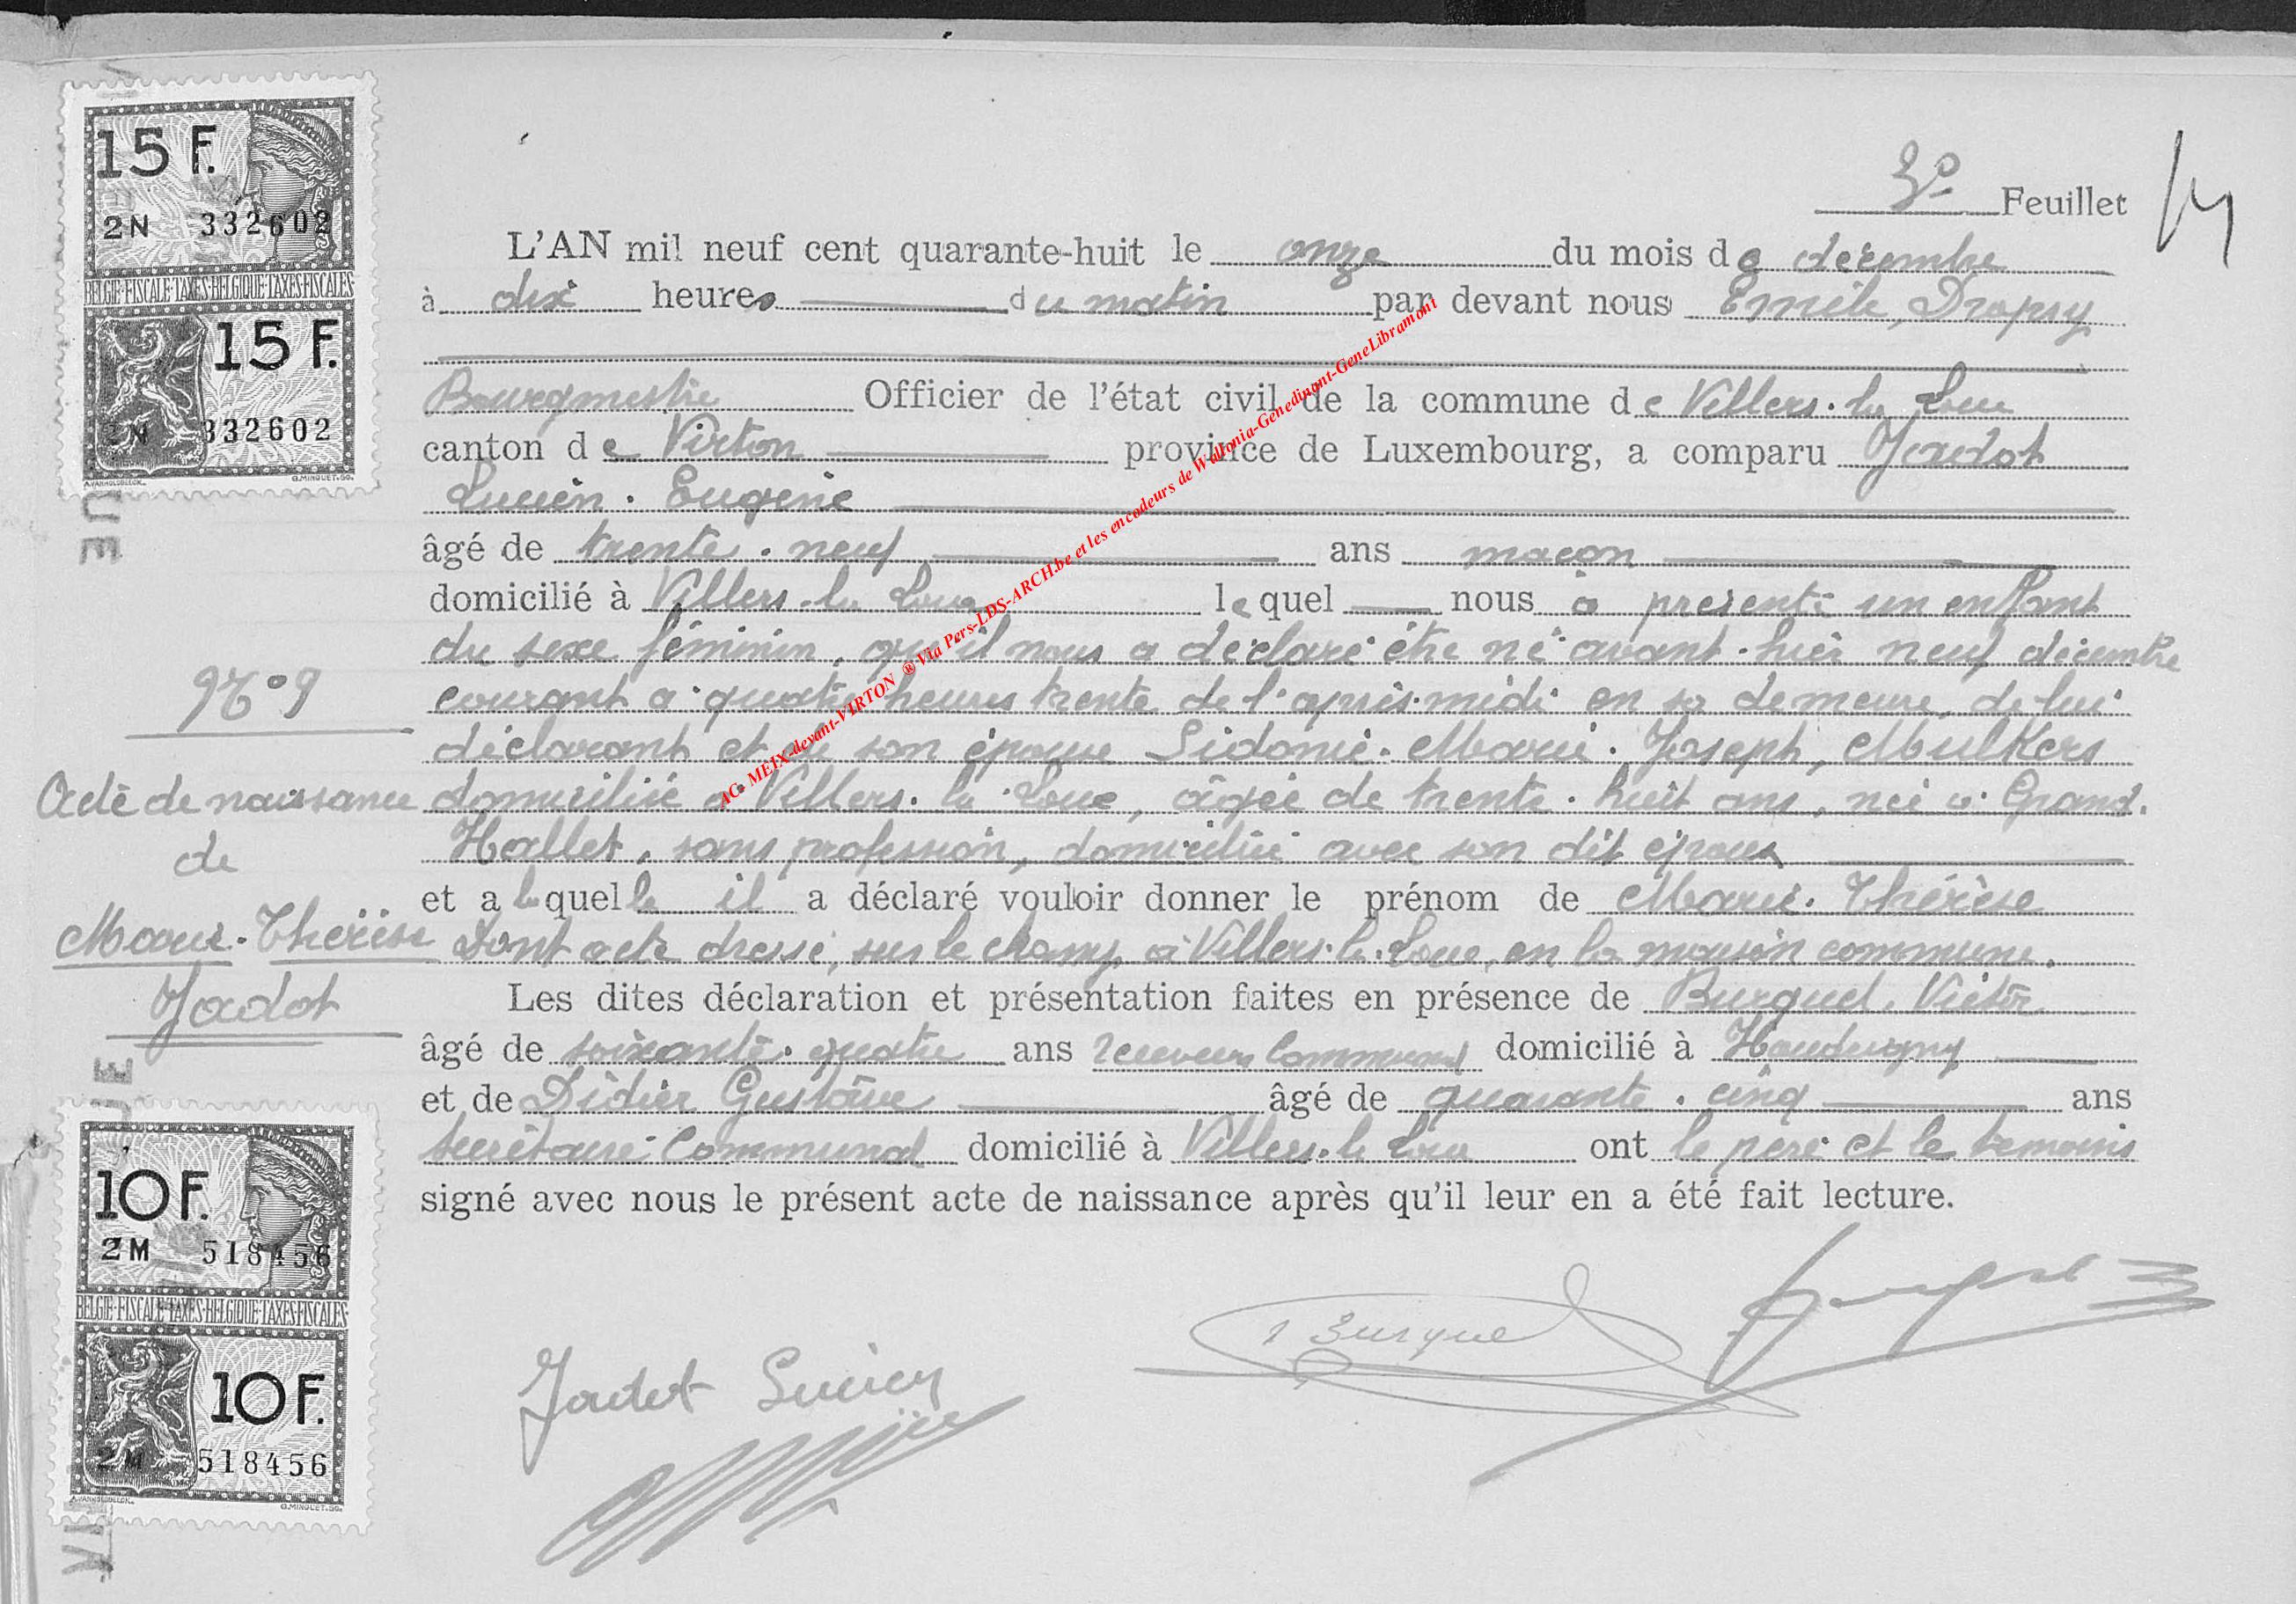 15 F.
2N 332602
BELGIE·FISCALE·TAXES·BELGIQUE·TAXES·FISCALES
15 F.
2N 332602
3e Feuillet
L'AN mil neuf cent quarante-huit le onze du mois de décembre
à dix heures du matin par devant nous Emile, Dropsy
Bourgmestre Officier de l'état civil de la commune de Villers-la Loue
canton de Virton province de Luxembourg, a comparu Jadot
Lucien. Eugène
âgé de trente. neuf ans maçon
domicilié à Villers-la Loue lequel nous a présenté un enfant
du sexe féminin, qu'il nous a déclaré être né avant-hier neuf décembre
courant à quatre heures trente de l'après-midi en sa demeure, de lui
déclarant et de son épouse Sidonie. Marie. Joseph, Mulkers
domiciliée à Villers-la-Loue, âgée de trente. huit ans, née à Grand.
Hallet, sans profession, domiciliée avec son dit époux
et a laquelle il a déclaré vouloir donner le prénom de Marie. Thérèse
Dont acte dressé, sur le champ à Villers-la-Loue, en la maison commune.
Les dites déclaration et présentation faites en présence de Burquel, Victor
âgé de soixante. quatre ans receveur Communal domicilié à
et de Didier Gustave âgé de quarante. cinq ans
secrétaire Communal domicilié à Villers-la Loue ont le père et le témoins
signé avec nous le présent acte de naissance après qu'il leur en a été fait lecture.
N° 9
Acte de naissance
de
Marie-Thérèse
Jadot
10 F.
2M 518456
BELGIE·FISCALE·TAXES·BELGIQUE·TAXES·FISCALES
10 F.
2M 518456
Jadot Lucien
Burquel
AC. MEIX-devant-VIRTON ® Via Pers-LDS-ARCH.be et les encodeurs de Wallonia-Genedinant-GeneLibramont